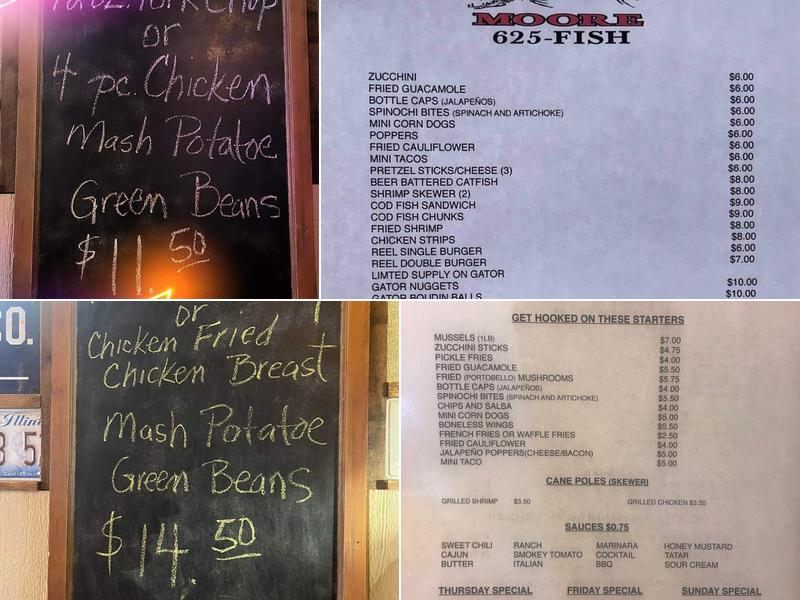 Pork Chop
or
4 pc. Chicken
Mash Potatoe
Green Beans
$11.50
MOORE
625-FISH
ZUCCHINI $6.00
FRIED GUACAMOLE $6.00
BOTTLE CAPS (JALAPEÑOS) $6.00
SPINOCHI BITES (SPINACH AND ARTICHOKE) $6.00
MINI CORN DOGS $6.00
POPPERS $6.00
FRIED CAULIFLOWER $6.00
MINI TACOS $6.00
PRETZEL STICKS/CHEESE (3) $6.00
BEER BATTERED CATFISH $8.00
SHRIMP SKEWER (2) $8.00
COD FISH SANDWICH $9.00
COD FISH CHUNKS $9.00
FRIED SHRIMP $8.00
CHICKEN STRIPS $8.00
REEL SINGLE BURGER $6.00
REEL DOUBLE BURGER $7.00
LIMTED SUPPLY ON GATOR
GATOR NUGGETS $10.00
GATOR BOUDIN BALLS $10.00
or
Chicken Fried
Chicken Breast
Mash Potatoe
Green Beans
$14.50
O.
Illin
3 5
GET HOOKED ON THESE STARTERS
MUSSELS (1LB) $7.00
ZUCCHINI STICKS $4.75
PICKLE FRIES $4.00
FRIED GUACAMOLE $5.50
FRIED (PORTOBELLO) MUSHROOMS $5.75
BOTTLE CAPS (JALAPEÑOS) $4.00
SPINOCHI BITES (SPINACH AND ARTICHOKE) $5.50
CHIPS AND SALSA $4.00
MINI CORN DOGS $5.00
BONELESS WINGS $5.50
FRENCH FRIES OR WAFFLE FRIES $2.50
FRIED CAULIFLOWER $4.00
JALAPEÑO POPPERS(CHEESE/BACON) $5.00
MINI TACO $5.00
CANE POLES (SKEWER)
GRILLED SHRIMP $3.50 GRILLED CHICKEN $3.50
SAUCES $0.75
SWEET CHILI RANCH MARINARA HONEY MUSTARD
CAJUN SMOKEY TOMATO COCKTAIL TATAR
BUTTER ITALIAN BBQ SOUR CREAM
THURSDAY SPECIAL FRIDAY SPECIAL SUNDAY SPECIAL